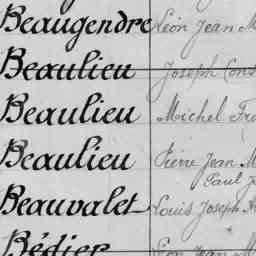 Beaugendre Léon Jean M
Beaulieu Joseph Cons
Beaulieu Michel Fra
Beaulieu Pierre Jean M
Paul J
Beauvalet Louis Joseph A
Bédier Léon Jean M